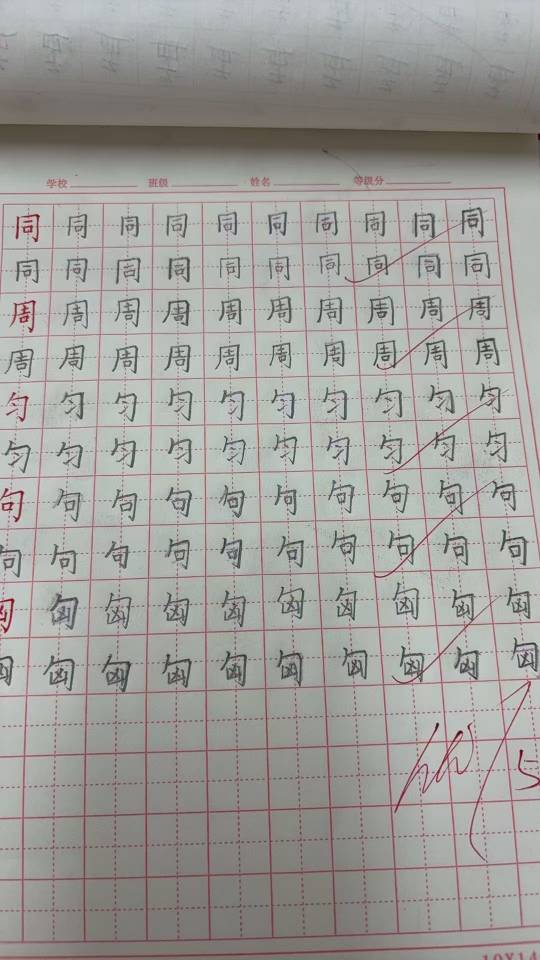 学校 班级 姓名 等级分
同同同同同同同同同同
同同同同同同同同同同
周周周周周周周周周周
周周周周周周周周周周
匀匀匀匀匀匀匀匀匀匀
匀匀匀匀匀匀匀匀匀匀
句句句句句句句句句句
句句句句句句句句句句
匈匈匈匈匈匈匈匈匈匈
匈匈匈匈匈匈匈匈匈匈
5
10X14